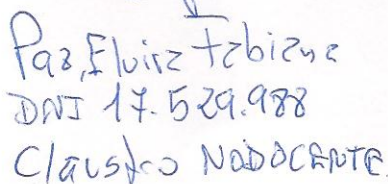 Paz, Elvira Fabiana
DNI 17.529.988
Claustro NODOCENTE